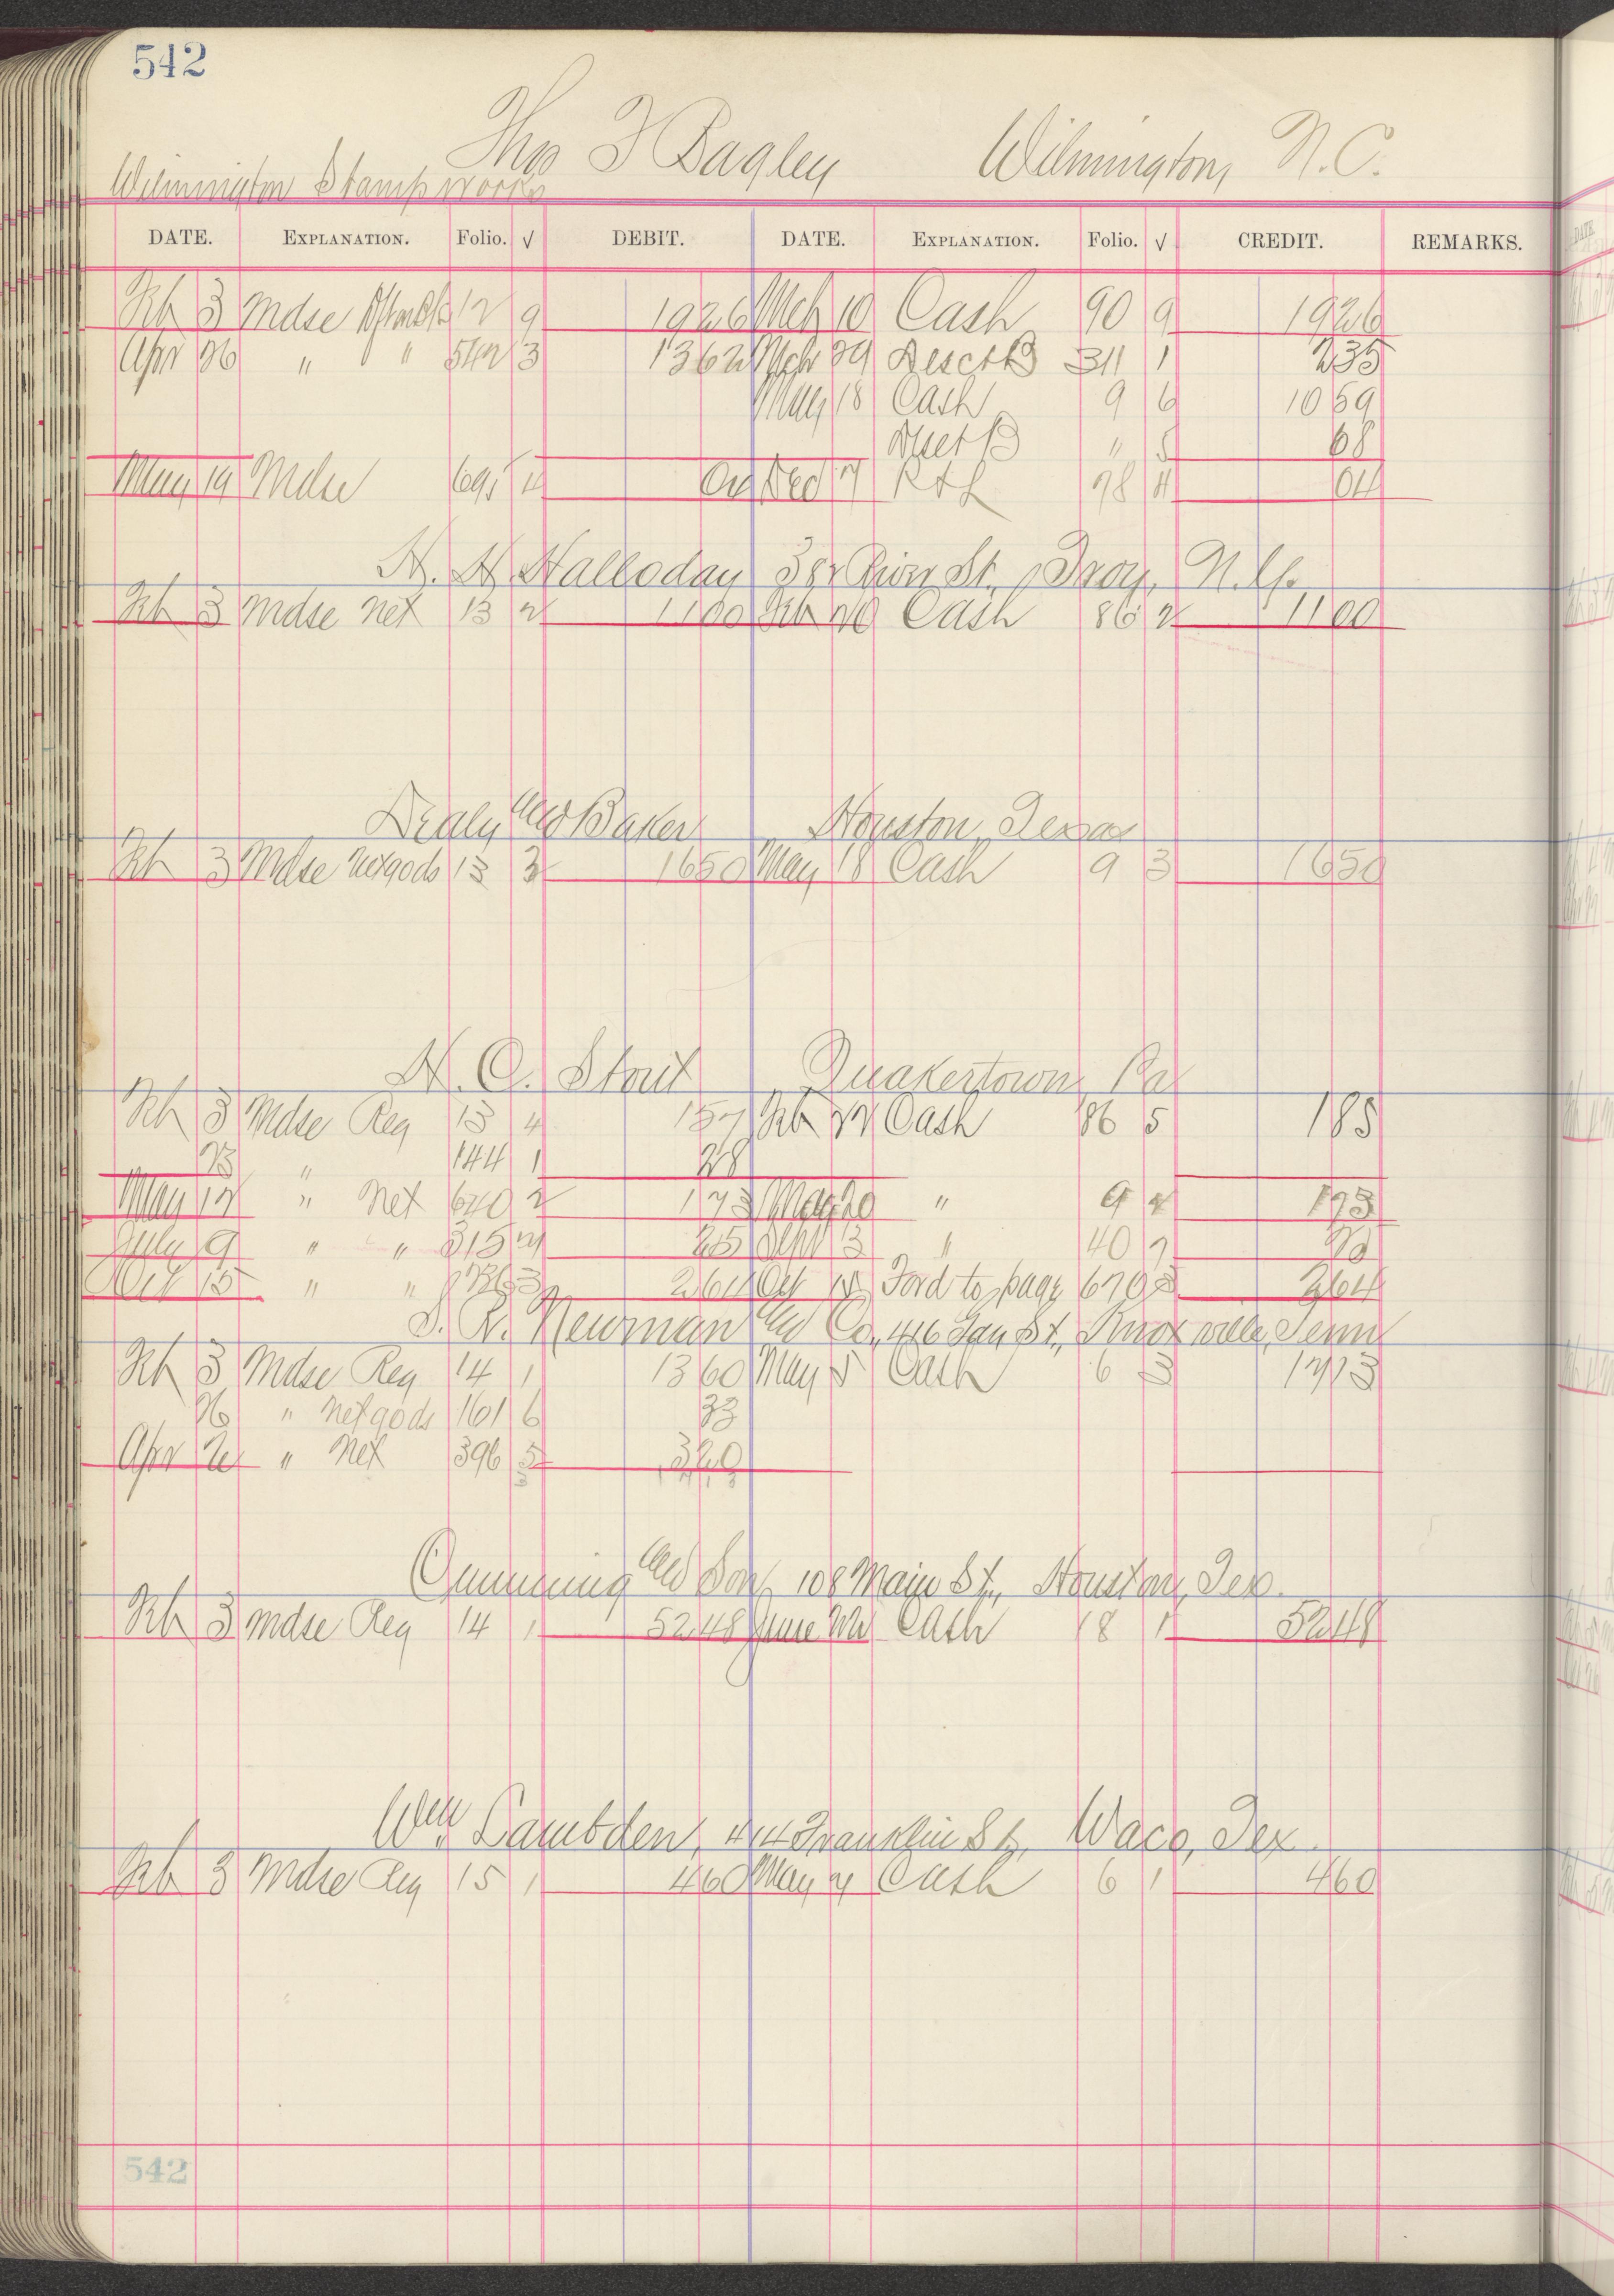 542
Thos F Bagley Wilmington, N.C.
Wilmington Stamp works
DATE. EXPLANATION. Folio. √ DEBIT. DATE. EXPLANATION. Folio. √ CREDIT. REMARKS.
Feb 3 Mdse 12 9 1926 Mch 10 Cash 90 9 1926
Apr 26 " " 542 3 1362 Mch 29 311 1 235
May 18 Cash 9 6 1059
" 5 68
May 19 Mdse 695 4 04 Dec 7 P & L 98 11 04
H. H. Halloday 382 River St., Troy, N.Y.
Feb 3 Mdse Net 13 2 1100 Feb 20 Cash 86 2 1100
Dealy and Baker Houston, Texas
Feb 3 Mdse Netgods 13 3 1650 May 18 Cash 9 3 1650
H. C. Stout Quakertown Pa
Feb 3 Mdse Reg 13 4 157 Feb 27 Cash 86 5 185
23 " 144 1 28
May 12 " Net 640 2 173 May 20 " 9 4 173
July 9 " " 315 25 Sept 3 " 40 7 25
Oct 15 " " 3 264 Oct 15 Ford to page 670 3 264
S. R. Newman and Co., 416 Gay St., Knoxville, Tenn
Feb 3 Mdse Reg 14 1 1360 May 5 Cash 6 3 1713
26 " Netgods 161 6 33
Apr 2 " Net 396 5 320
Cumming and Son, 108 Main St., Houston, Tex.
Feb 3 Mdse Reg 14 1 5248 June 22 Cash 18 1 5248
Wm Lambden, 414 Franklin St., Waco, Tex.
Feb 3 Mdse Reg 15 1 460 May 4 Cash 6 1 460
542